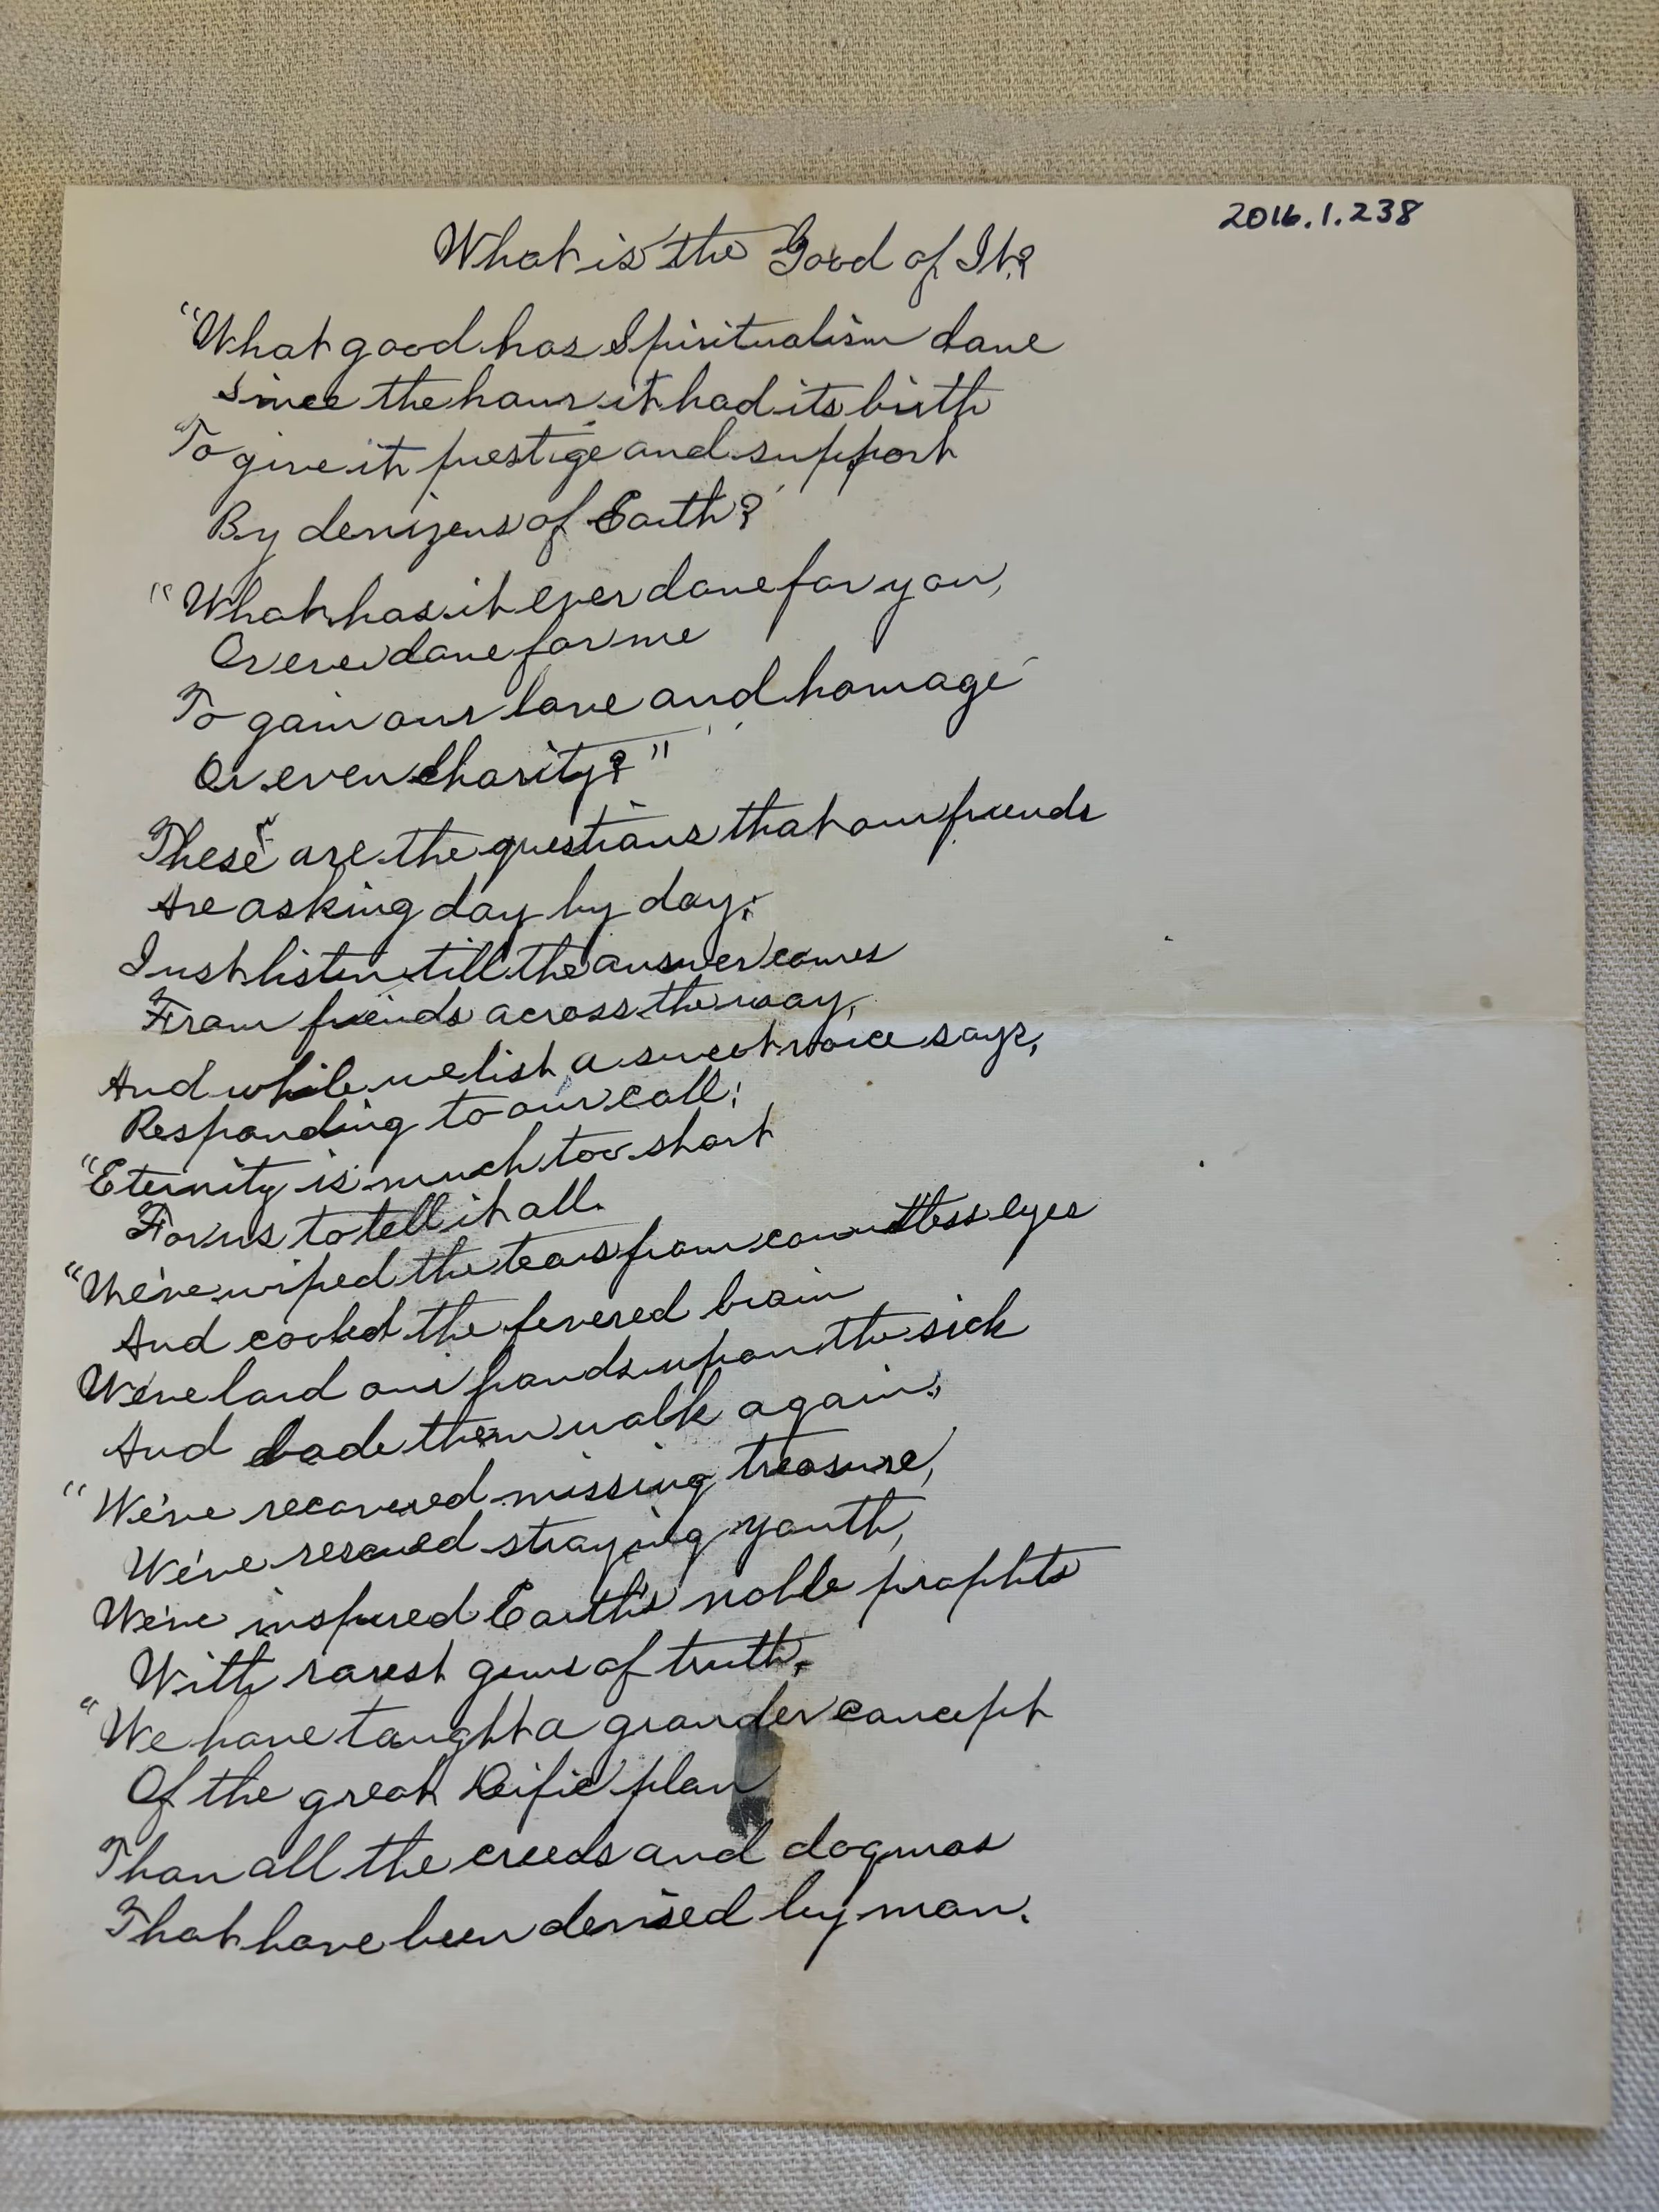 2016.1.238
What is the Good of It?
"What good has Spiritualism done
Since the hour it had its birth
To give it prestige and support
By denizens of Earth?
"What has it ever done for you,
Or ever done for me
To gain our love and homage
Or even Charity?"
These are the questions that our friends
Are asking day by day;
Just listen till the answer comes
From friends across the way,
And while we list a sweet voice says,
Responding to our call;
"Eternity is much too short
For us to tell it all.
"We've wiped the tears from countless eyes
And cooled the fevered brain
We've laid our hands upon the sick
And bade them walk again;
"We've recovered missing treasure,
We've rescued straying youth,
We've inspired Earth's noble prophets
With rarest gems of truth.
"We have taught a grander concept
Of the great Deific plan
Than all the creeds and dogmas
That have been devised by man.